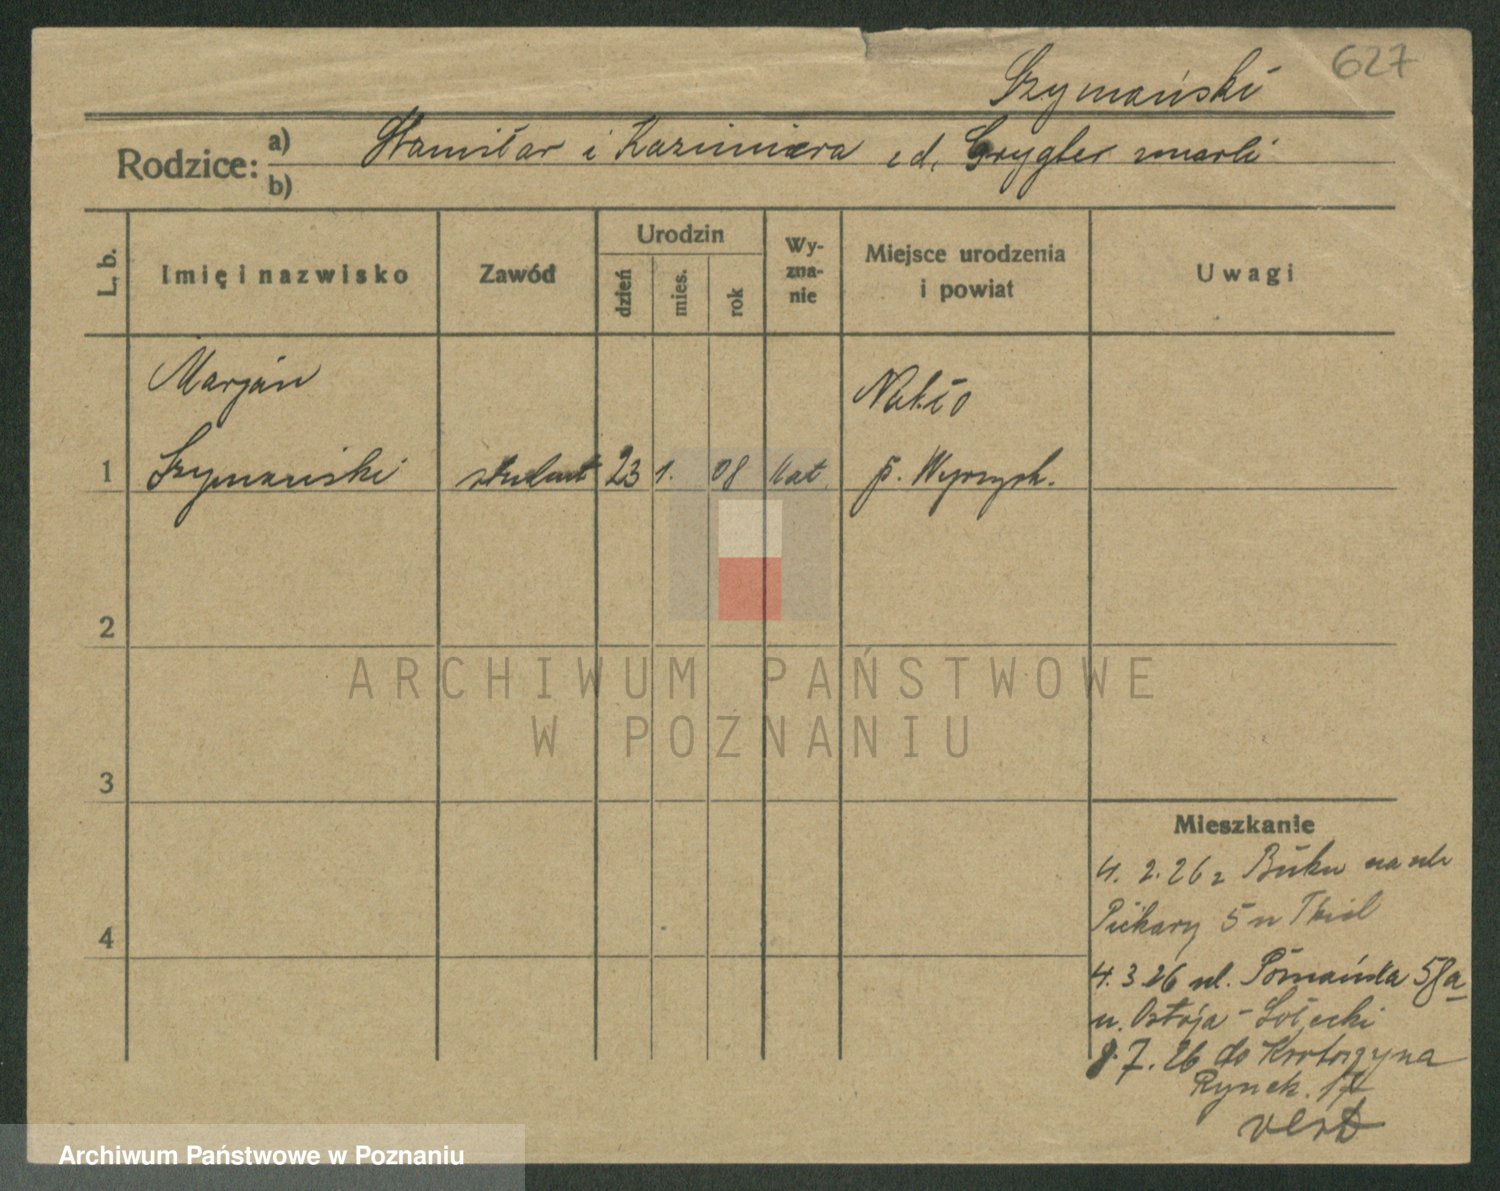 627
Szymański
Rodzice:
a) Stanisław i Kazimiera z d. Grygler zmarli
b)
L. b.
Imię i nazwisko
Zawód
Urodzin
dzień
mies.
rok
Wy-
zna-
nie
Miejsce urodzenia
i powiat
Uwagi
Marjan
Nakło
1 Szymański student 23 1. 08 kat. p. Wyrzysk.
2
3
4
ARCHIWUM PAŃSTWOWE
W POZNANIU
Mieszkanie
4. 2. 26 z Buku na ul.
Piekary 5 u Thiel
4. 3. 26 ul. Poznańska 58a
u. Ostoja-Solecki
8. 7. 26 do Krotoszyna
Rynek. 17
Archiwum Państwowe w Poznaniu